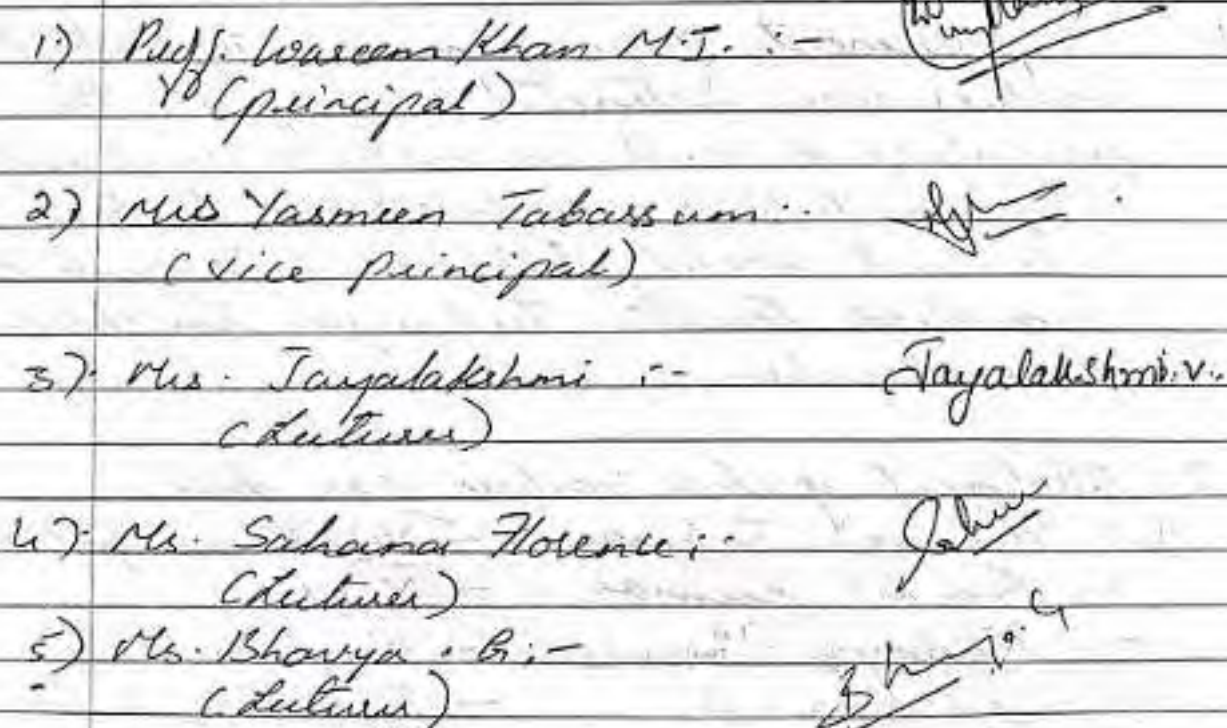 1.) Proff. Waseem Khan M.I. :-
(principal)
2) Mrs Yasmeen Tabassum :-
(Vice principal)
3) Mrs. Jayalakshmi :- Jayalakshmi.V.
(Lecturer)
4) Ms. Sahana Florence :-
(Lecturer)
5) Ms. Bhavya . G :-
(Lecturer)